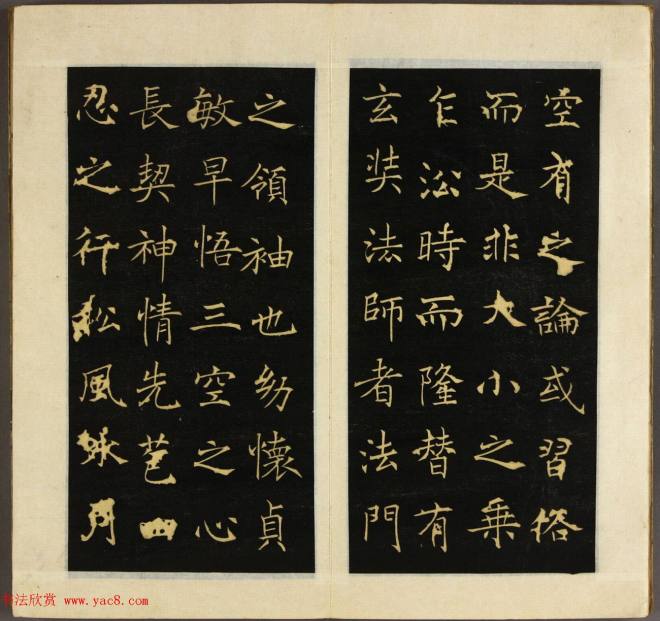 空有之論或習俗
而是非大小之乗
乍沿時而隆替有
玄奘法師者法門
之領袖也幼懷貞
敏早悟三空之心
長契神情先苞四
忍之行松風水月
书法欣赏 www.yac8.com